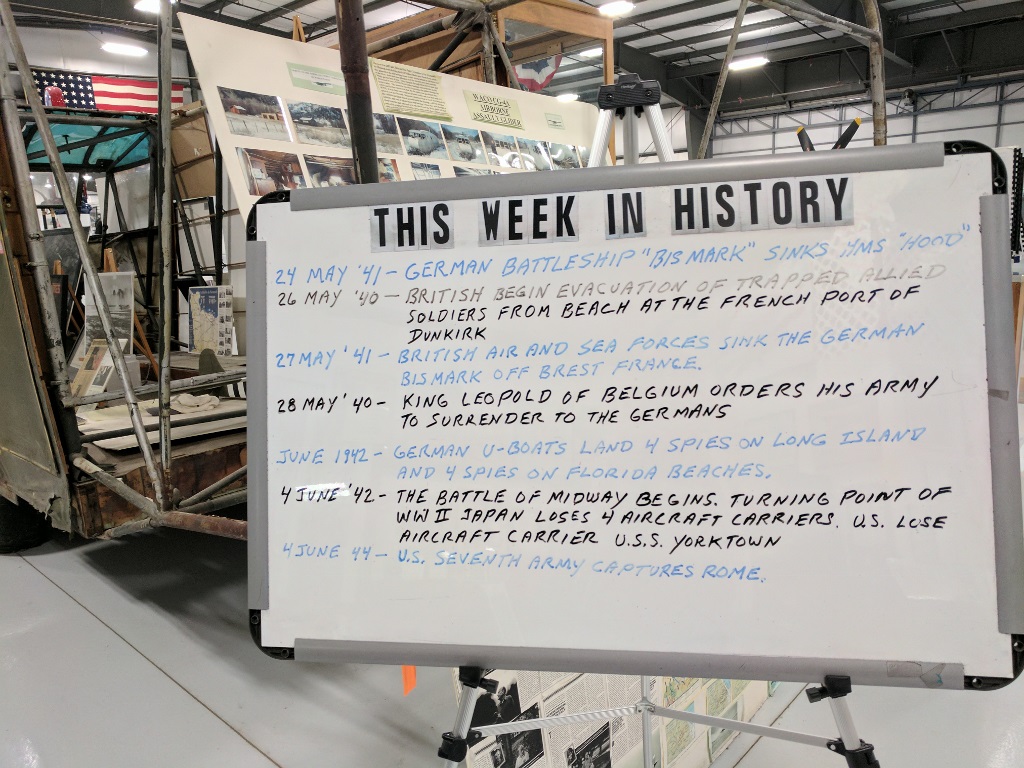 WACO CG-4A
AIRBORNE
ASSAULT GLIDER
THIS WEEK IN HISTORY
24 MAY '41 - GERMAN BATTLESHIP "BISMARK" SINKS HMS "HOOD"
26 MAY '40 - BRITISH BEGIN EVACUATION OF TRAPPED ALLIED
SOLDIERS FROM BEACH AT THE FRENCH PORT OF
DUNKIRK
27 MAY '41 - BRITISH AIR AND SEA FORCES SINK THE GERMAN
BISMARK OFF BREST FRANCE.
28 MAY '40 - KING LEOPOLD OF BELGIUM ORDERS HIS ARMY
TO SURRENDER TO THE GERMANS
JUNE 1942 - GERMAN U-BOATS LAND 4 SPIES ON LONG ISLAND
AND 4 SPIES ON FLORIDA BEACHES.
4 JUNE '42 - THE BATTLE OF MIDWAY BEGINS. TURNING POINT OF
WW II JAPAN LOSES 4 AIRCRAFT CARRIERS. U.S. LOSE
AIRCRAFT CARRIER U.S.S. YORKTOWN
4 JUNE 44 - U.S. SEVENTH ARMY CAPTURES ROME.